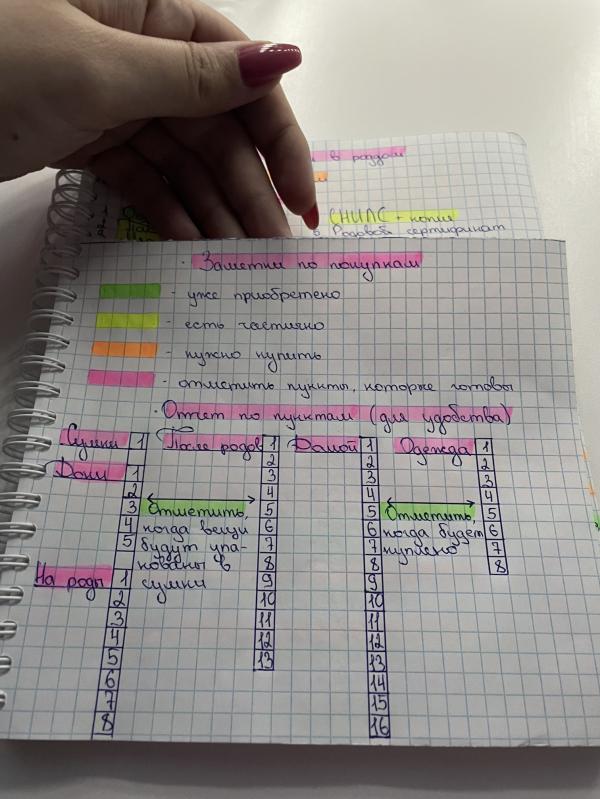 в роддом
СНИЛС + копия
5 Родовой сертификат
· Заметки по покупкам
- уже приобретено
- есть частично
- нужно купить
- отметить пункты, которые готовы
· Отчет по пунктам (для удобства)
Сумки 1
Доки 1 2 3 4 5
На роды 1 2 3 4 5 6 7 8
После родов 1 2 3 4 5 6 7 8 9 10 11 12 13
Отметить,
когда вещи
будут упа-
кованы в
сумки
Домой 1 2 3 4 5 6 7 8 9 10 11 12 13 14 15 16
Одежда 1 2 3 4 5 6 7 8
Отметить,
когда будет
куплено